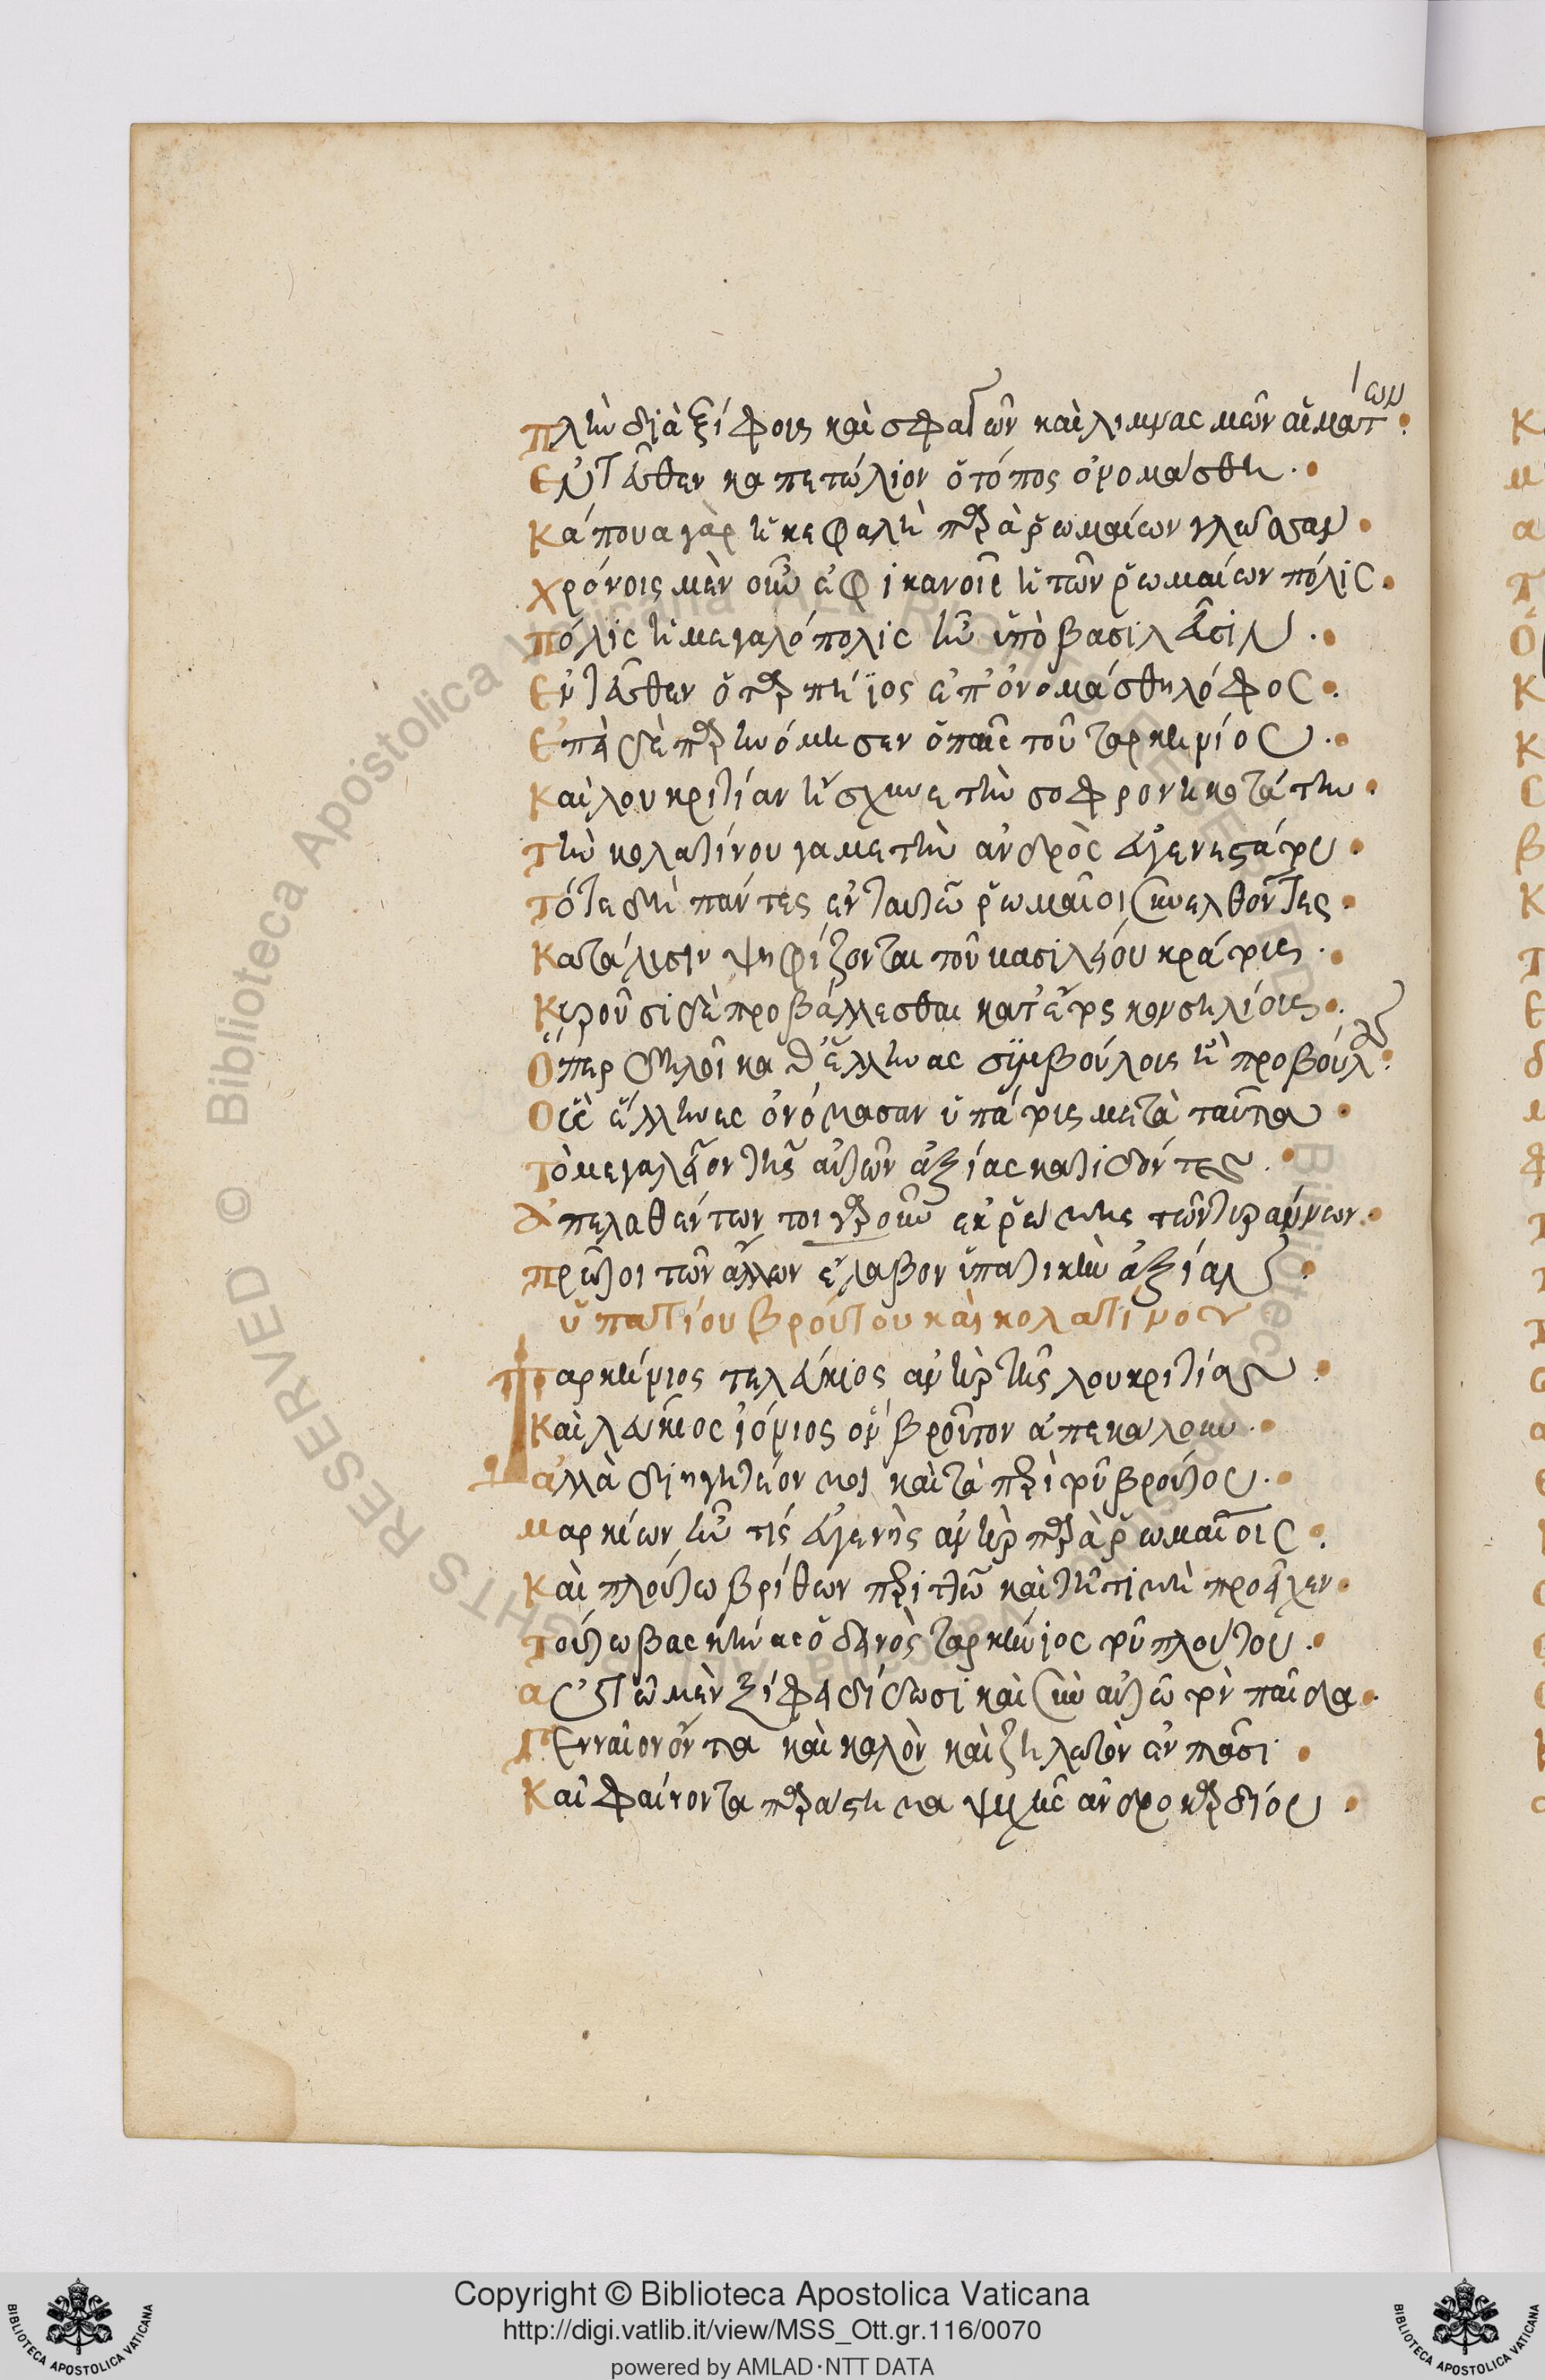 πλὴν διὰ ξίφους καὶ σφαγῶν καὶ λίμνας μὲν αἱμάτων
Ἐντεῦθεν καπετώλιον ὁ τόπος ὀνομάσθη
Κάπουα γὰρ ἡ κεφαλὴ παρὰ ῥωμαίων γλῶσσαν
χρόνοις μὲν οὖν ἐφ ἱκανοῖς ἡ τῶν ῥωμαίων πόλις
πόλις ἡ μεγαλόπολις ἦν ὑπὸ βασιλεῦσιν
Ἐντεῦθεν ὁ ταρπήϊος ἐπονομάσθη λόφος
Ἐπεὶ δὲ παρηνόμησεν ὁ παῖς τοῦ ταρκηνίου
Καὶ λουκριτίαν ᾔσχυνε τὴν σοφρονηκοτάτην
τὴν κολατίνου γαμετὴν ἀνδρὸς εὐγενεστάτου
Τότε δὴ πάντες ἐν ταυτῶ ῥωμαῖοι συνελθόντες
Κατάλυσιν ψηφίζονται τοῦ βασιλείου κράτους
Κυροῦσι δὲ προβάλλεσθαι κατ' ἔτος κονσηλίους
Ὅπερ δηλοῖ καθ' ἕλληνας συμβούλους ἢ προβούλους
Οὓς ἕλληνες ὀνόμασαν ὑπάτους μετὰ ταῦτα
τὸ μεγαλεῖον τῆς αὐτῶν ἀξίας κατιδόντες
Ἀπελαθέντων τοιγαροῦν ἐκ ῥώμης τῶν τυράννων
πρῶτοι τῶν ἄλλων ἔλαβον ὑπατικὴν ἀξίαν
ὑπατίου βρούτου καὶ κολατίνου
Ταρκήνιος τε λεύκιος ἀνὴρ τῆς λουκριτίας
Καὶ λεύκιος ἰόνιος ὃν βροῦτον ἀπεκάλουν
ἀλλὰ διηγητέον μοι καὶ τὰ περὶ τοῦ βρούτου
μαρκίων ἦν τίς εὐγενὴς ἀνὴρ παρὰ ῥωμαίοις
Καὶ πλούτω βρίθων περιττῶ καὶ τῆ τιμῆ προεῖχεν
τούτω βασκήνας ὁ δεινὸς ταρκήνιος τοῦ πλούτου
αὐτῶ μὲν ξίφει δίδωσι καὶ σὺν αὐτῶ τὸν παῖδα
Γενναῖον ὄντα καὶ καλὸν καὶ ζηλωτὸν ἐν πᾶσι
Καὶ φαίνοντα παράστημα ψυχῆς ἀνδροκαρδίου
Copyright © Biblioteca Apostolica Vaticana
http://digi.vatlib.it/view/MSS_Ott.gr.116/0070
powered by AMLAD·NTT DATA